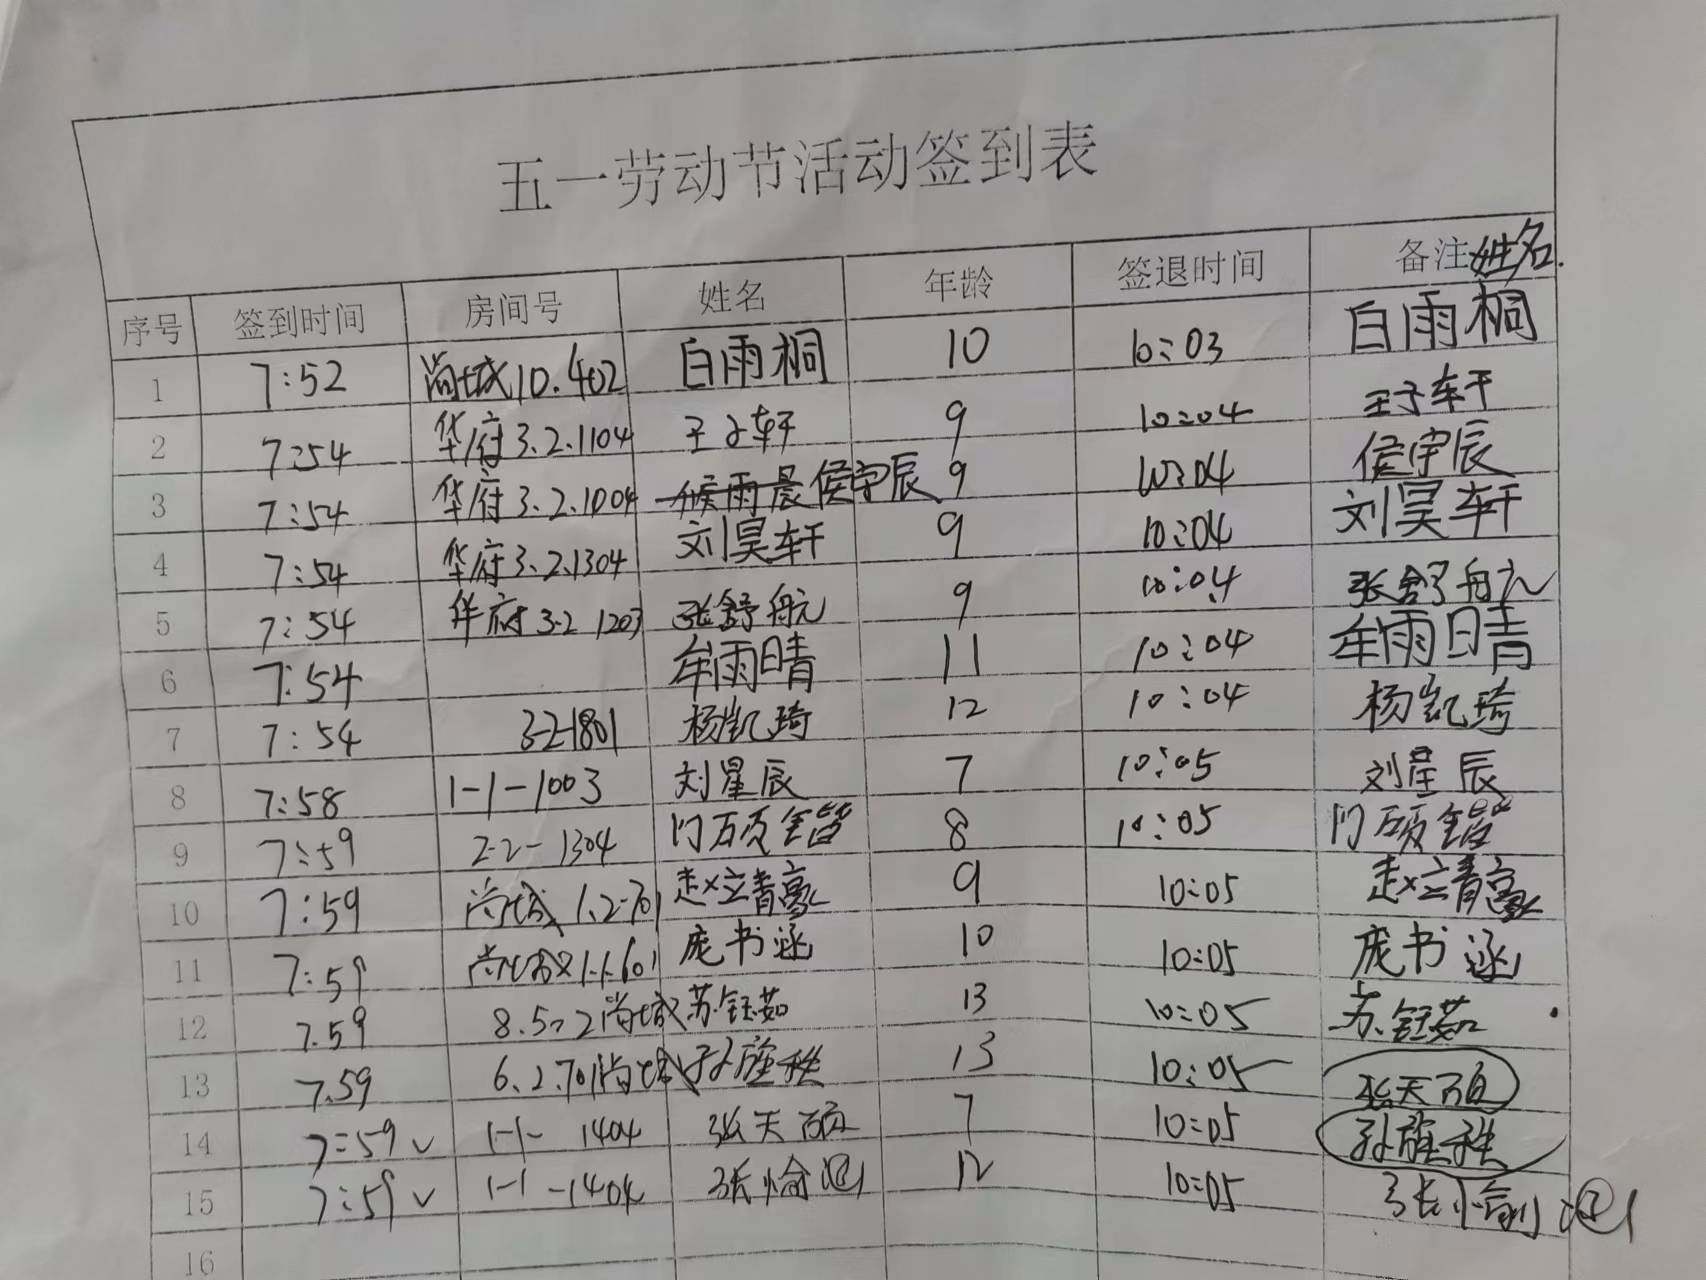 五一劳动节活动签到表
序号 签到时间 房间号 姓名 年龄 签退时间 备注 姓名.
1 7:52 尚城10.402 白雨桐 10 10:03 白雨桐
2 7:54 华府3.2.1104 王子轩 9 10:04 王子轩
3 7:54 华府3.2.1004 候雨晨 侯宇辰 9 10:04 侯宇辰
4 7:54 华府3.2.1304 刘昊轩 9 10:04 刘昊轩
5 7:54 华府3.2 1203 张舒航 9 10:04 张舒航
6 7:54 牟雨晴 11 10:04 牟雨晴
7 7:54 3-2-1801 杨凯琦 12 10:04 杨凯琦
8 7:58 1-1-1003 刘星辰 7 10:05 刘星辰
9 7:59 2-2-1304 门硕 8 10:05 门硕
10 7:59 尚城 1.2-701 赵 9 10:05 赵
11 7:59 1.1.601 庞书涵 10 10:05 庞书涵
12 7.59 8.5 2尚城 苏钰茹 13 10:05 苏钰茹
13 7.59 6.2.701尚城 孙 13 10:05 张天硕
14 7:59 √ 1-1- 1404 张天硕 7 10:05 孙
15 7:59 √ 1-1-1404 张愉 12 10:05 张愉
16